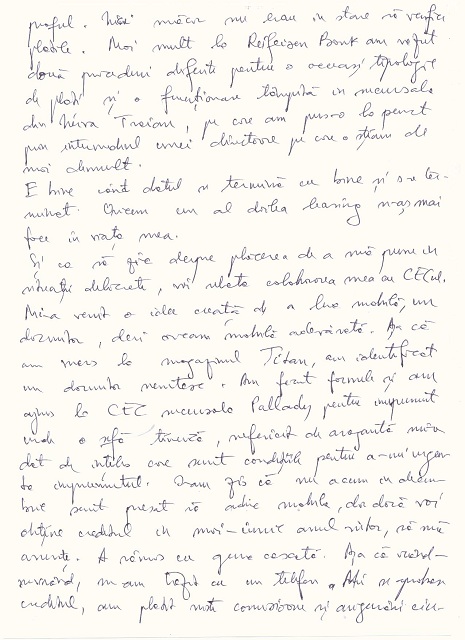 praful. Nici măcar nu erau in stare să verifice
plățile. Mai mult la Reifeisen Bank am văzut
două proceduri diferite pentru o aceeași tipologie
de plăți și o funcționare tâmpită in sucursala
din Mircea Traian, pe care am pus-o la punct
prin intermediul unei directoare pe care o știam de
mai demult.
E bine când totul se termină cu bine și s-a ter-
minat. Oricum un al doilea leasing n-aș mai
face in viața mea.
Și ca să zic despre plăcerea de a mă pune in
situații delicate, voi relata colaborarea mea cu CECul.
Mi-a venit o idee creață de a lua mobilă, un
dormitor, deși aveam mobilă adevărată. Așa că
am mers la magazinul Titan, am identificat
un dormitor nemțesc. Am făcut formele și am
ajuns la CEC sucursala Pallady pentru imprumut
unde o șefă tânără, nefericit de arogantă mi-a
dat de înțeles care sunt condițiile pentru a-mi urgen-
ta imprumutul. I-am zis că nu acum in decem-
brie sunt presat să aduc mobila, dar dacă voi
obține creditul in mai-iunie anul viitor, să mă
anunțe. A rămas cu gura căscată. Așa că vrând-
nevrând, m-am trezit cu un telefon. Mi se aprobase
creditul, am plătit niște comisioane și angarale ciu-